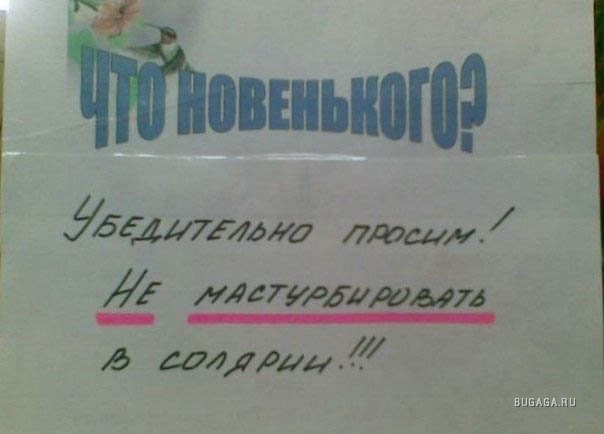 ЧТО НОВЕНЬКОГО?
Убедительно просим!
Не мастурбировать
в солярии!!!
BUGAGA.RU